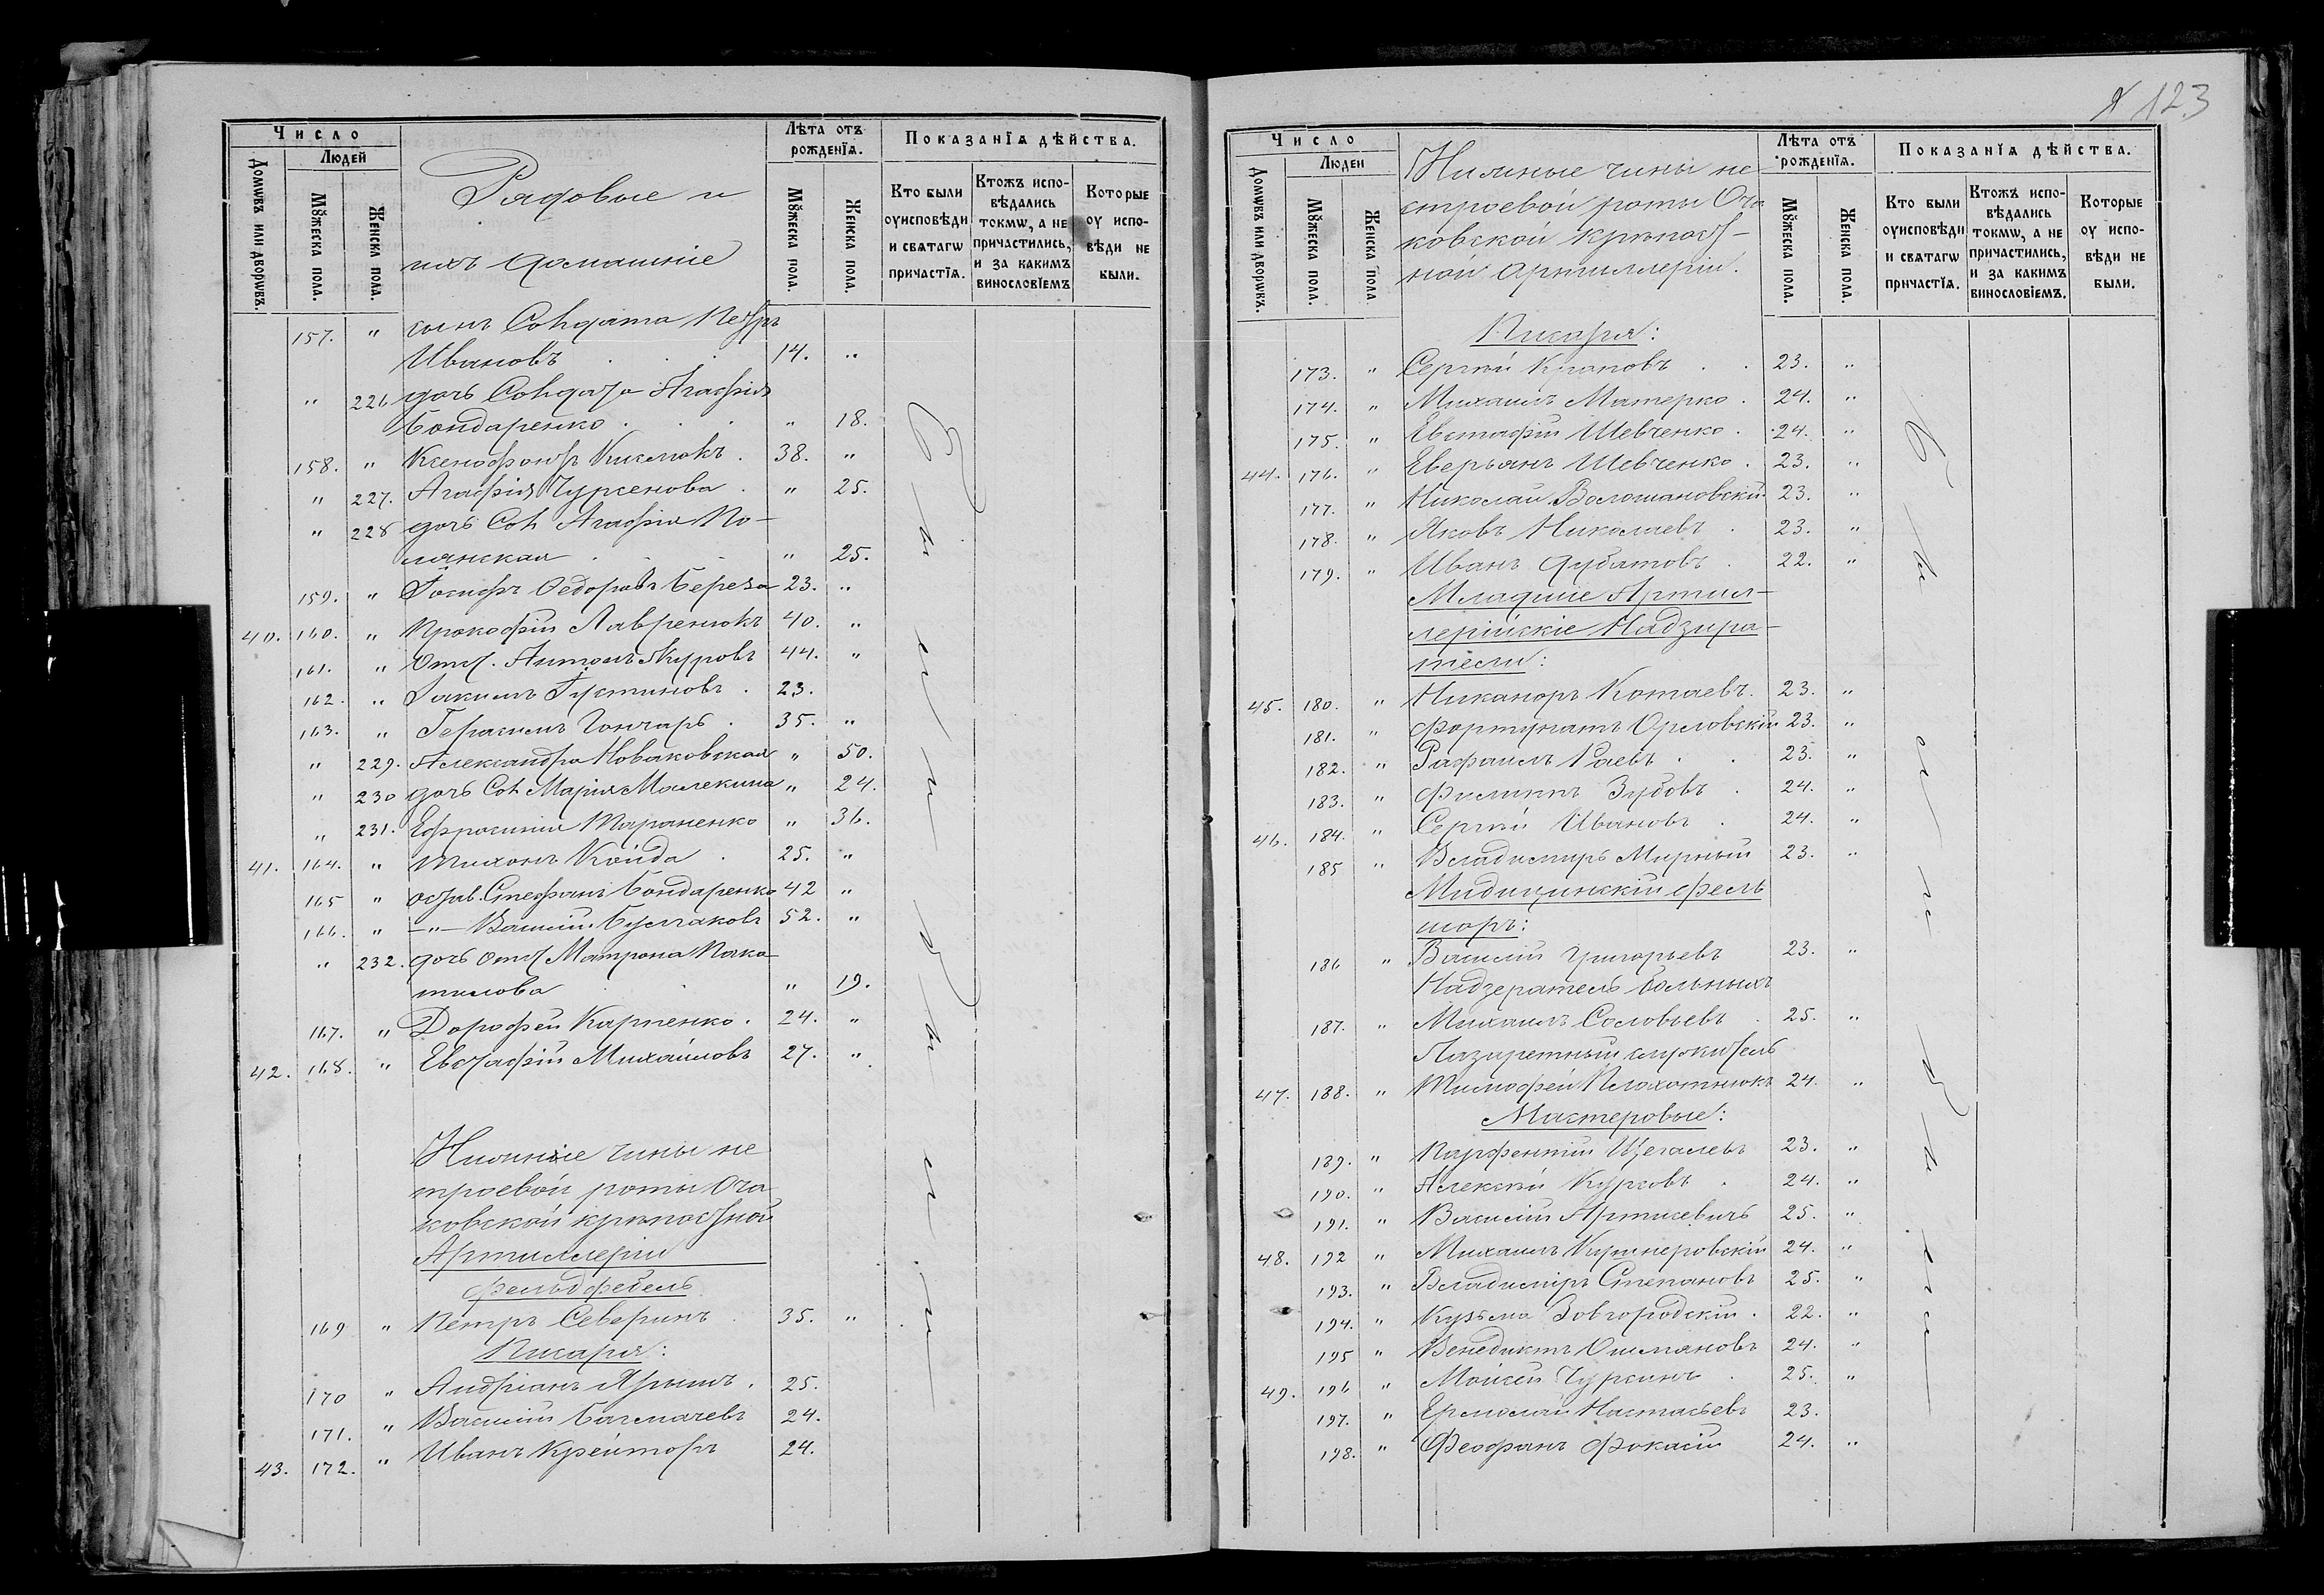 Число
Людей
Домѡвъ или дворѡвъ.
Мꙋжеска пола.
Женска пола.
Рядовые и
ихъ домашніе
Лѣта отъ рожденїѧ.
Мꙋжеска пола.
Женска пола.
Показанїѧ дѣйства.
Кто были оуисповѣди и свѧтагѡ причастїѧ.
Ктожъ исповѣдались токмѡ, а не причастились, и за какимъ винословїемъ
Которые оу исповѣди не были.
157. " сынъ Солдата Петръ
Ивановъ 14. "
" 226 дочь Солдата Агафія
Бондаренко . . . " 18.
158. " Ксенофонтъ Кислюкъ . 38. "
" 227. Агафія Чурсенова . " 25.
" 228 дочь Сол Агафія По-
лянская " 25.
159. " Іосифъ Федоровъ Береза 23. "
40. 160. " Прокофій Лавренюкъ 40. "
161. " Отст. Антонъ Якуровъ 44. "
162. " Іакимъ Густиновъ . 23.
163. " Герасимъ Гончаръ . 35. "
" 229. Александра Новаковская " 50.
" 230 дочь Сол Марія Малекина " 24.
" 231. Ефросинія Тараненко " 36.
41. 164. " Тихонъ Койда . 25. "
165 " отстав. Стефанъ Бондаренко 42 "
166. " -"- Василій Буслаковъ 52. "
" 232. дочь Отст Матрона Пака-
тилова " 19.
167. " Дорофей Карпенко . 24. "
42. 168. " Евстафій Михайловъ 27. "
Нижніе чины не
строевой роты Оча
ковской крѣпостной
Артиллеріи
Фельдфебель
169 " Петръ Северинъ 35. "
Писаря:
170 " Андріанъ Ярышъ . 25.
171. " Василій Багмачевъ 24.
43. 172. " Иванъ Крейторъ 24.
Были
№ 123
Число
Людей
Домѡвъ или дворѡвъ.
Мꙋжеска пола.
Женска пола
Нижніе чины не
строевой роты Оча
ковской крѣпост-
ной Артиллеріи.
Лѣта отъ рожденїѧ.
Мꙋжеска пола.
Женска пола.
Показанїѧ дѣйства.
Кто были оуисповѣди и свѧтагѡ причастїѧ.
Ктожъ исповѣдались токмѡ, а не причастились, и за какимъ винословїемъ.
Которые оу исповѣди не были.
Писаря:
173. " Сергѣй Краповъ . . 23. "
174. " Михаилъ Матерко . 24. "
175. " Евстафій Шевченко . 24. "
44. 176. " Еверьянъ Шевченко . 23. "
177. " Николай Волошановскій 23. "
178. " Яковъ Николаевъ . 23. "
179. " Иванъ Дубатовъ . 22. "
Младшіе Артил-
лерійскіе Надзира-
тели:
45. 180. " Никаноръ Котаевъ. 23. "
181. " Фортунатъ Орловскій 23. "
182. " Рафаилъ Раевъ . . 23. "
183. " Филипъ Зубовъ . 24. "
46. 184. " Сергѣй Ивановъ . 24. "
185 " Владимиръ Мирный 23. "
Мидицинскій фель
шоръ:
186 " Василій Григорьевъ 23. "
Надзератель больныхъ
187. " Михаилъ Соловьевъ . 25. "
Лазаретный служитель
47. 188. " Тимофей Плохотнюкъ 24. "
Мастеровые:
189. " Парфентій Щегалевъ 23. "
190. " Алексѣй Курговъ . 24. "
191. " Василій Артисевичъ 25. "
48. 192 " Михаилъ Кушнеровскій 24. "
193. " Владиміръ Степановъ 25. "
194. " Кузьма Завгородскій . 22. "
195 " Венедиктъ Ошмяновъ 24. "
49. 196 " Моисей Чуркинъ . 25. "
197. " Ермолай Настасьевъ 23.
198. " Феофанъ Фокасій 24. "
Были